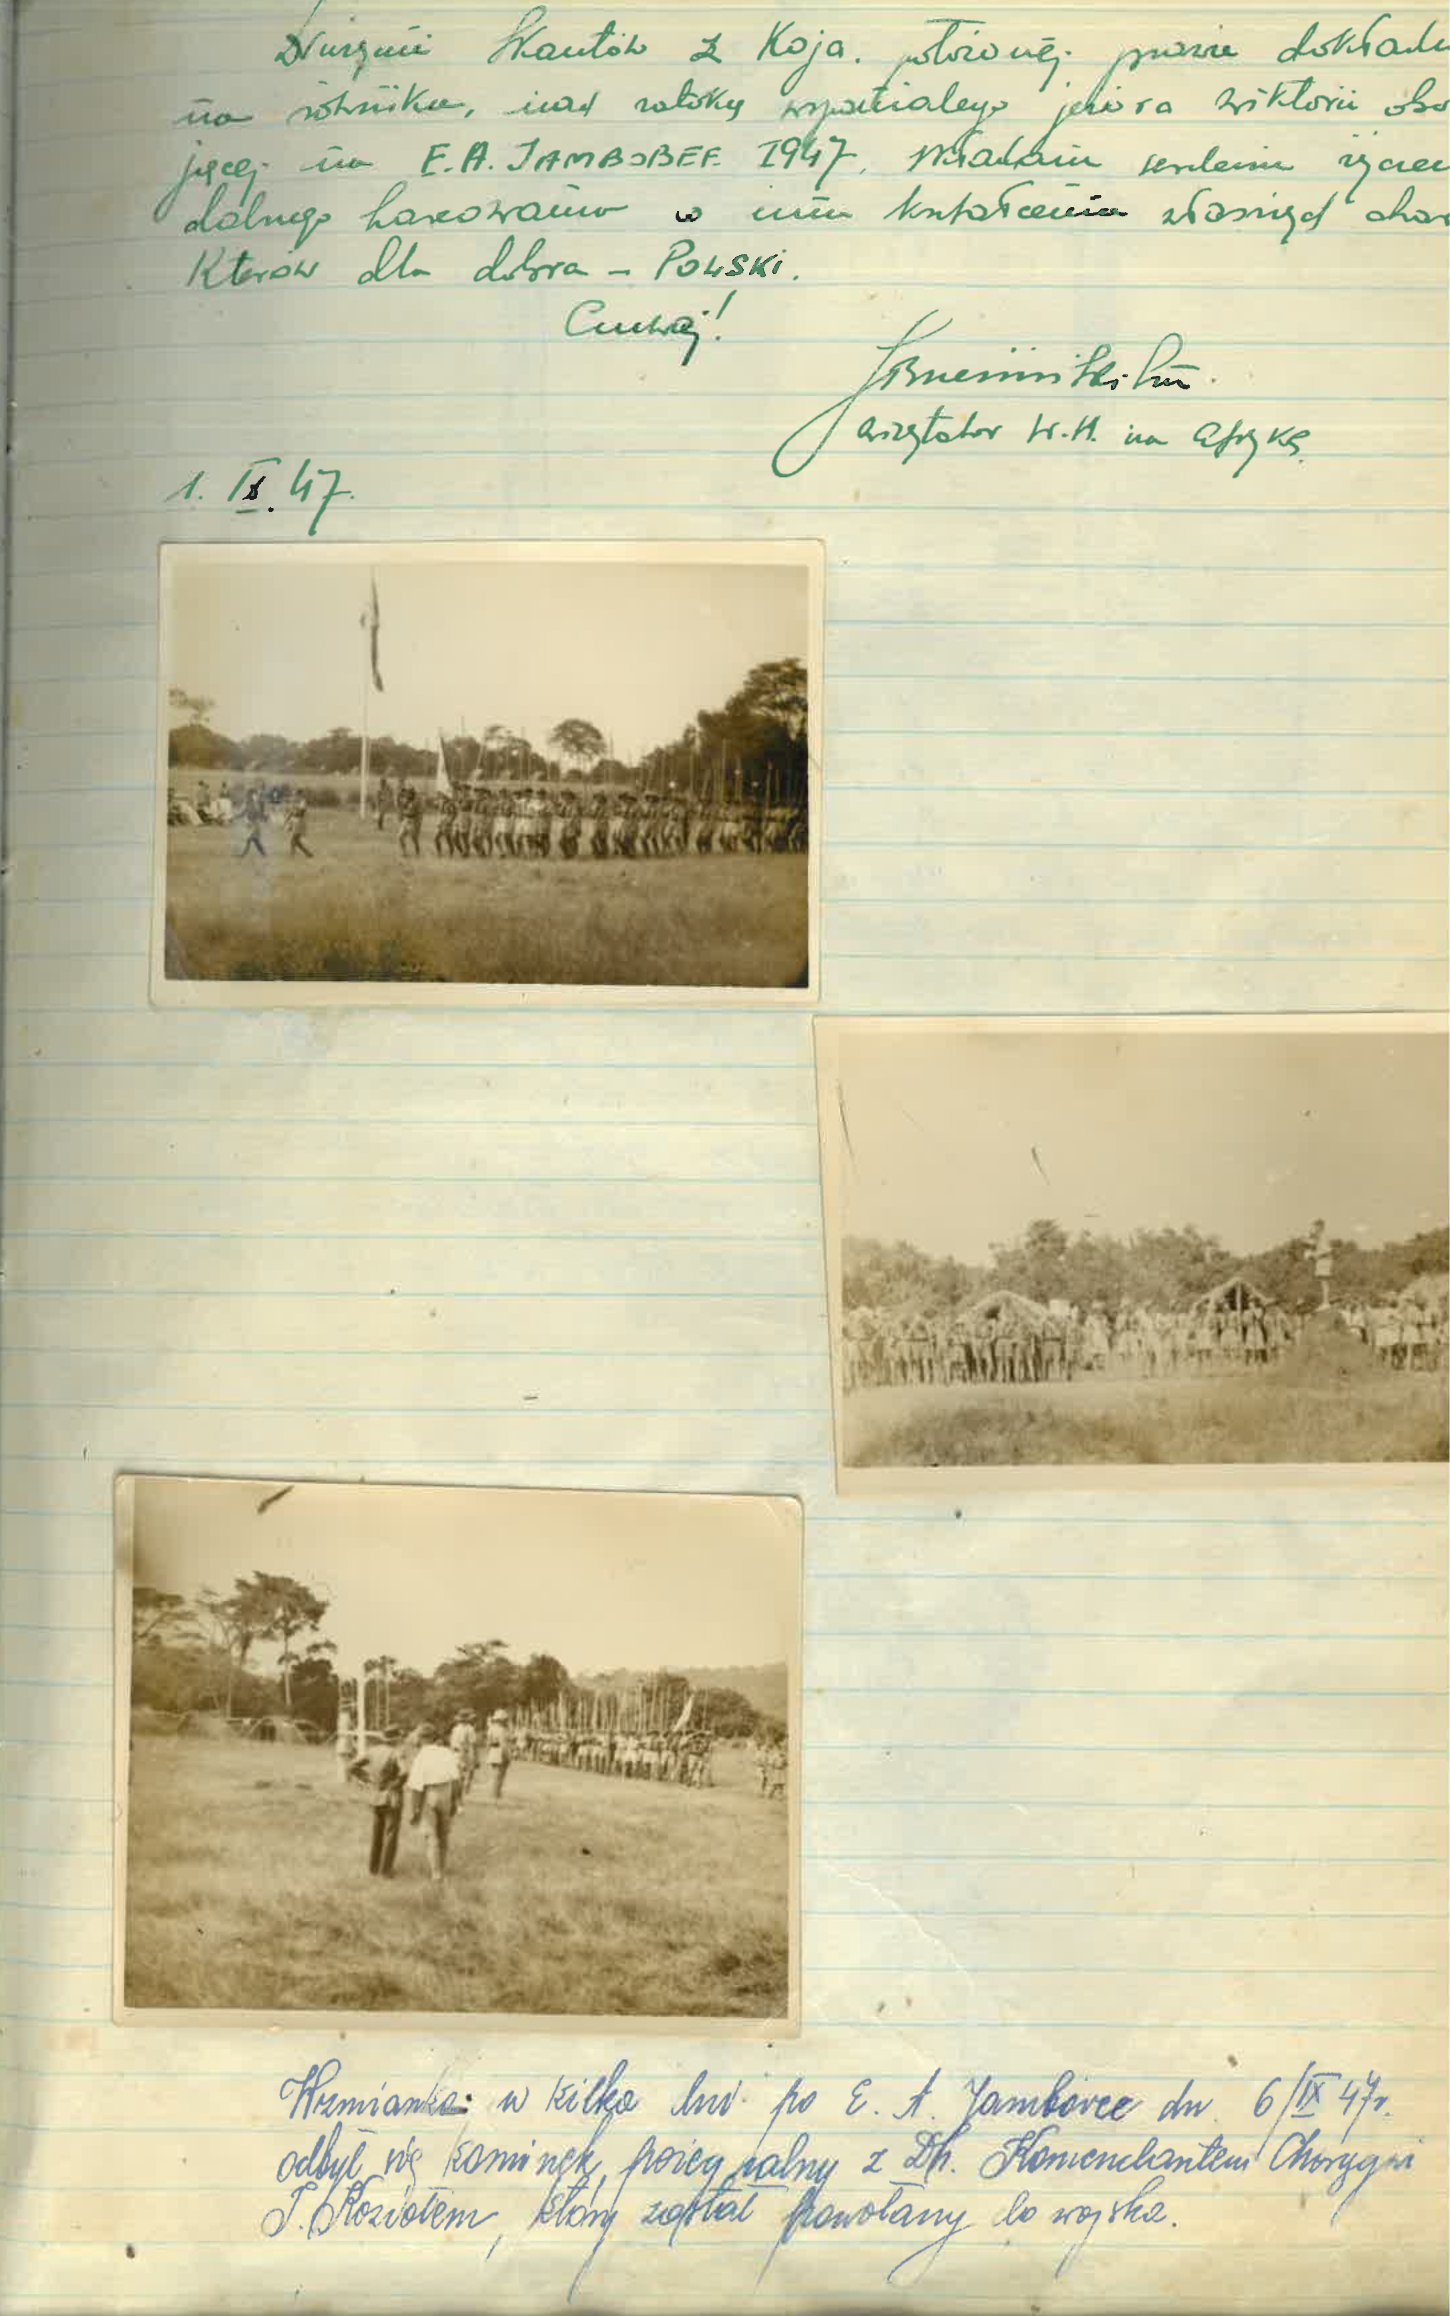 Drużynie Skautów z Koja. położonej prawie dokładn
na równiku, nad zatoką wspaniałego jeziora Wiktorii obo
jącej na E.A. JAMBOREE 1947. Składam serdeczne życzen
dalszego harcowania w imię kształcenia własnych char
kterów dla dobra – POLSKI.
Czuwaj!
wizytator W.H. na Afrykę.
1. IX. 47.
Wzmianka: w kilka dni po E. A. Jamboree dn. 6/IX 47r.
odbył się kominek pożegnalny z Dh. Komendantem Chorągwi
J. Koziołem, który został powołany do wojska.